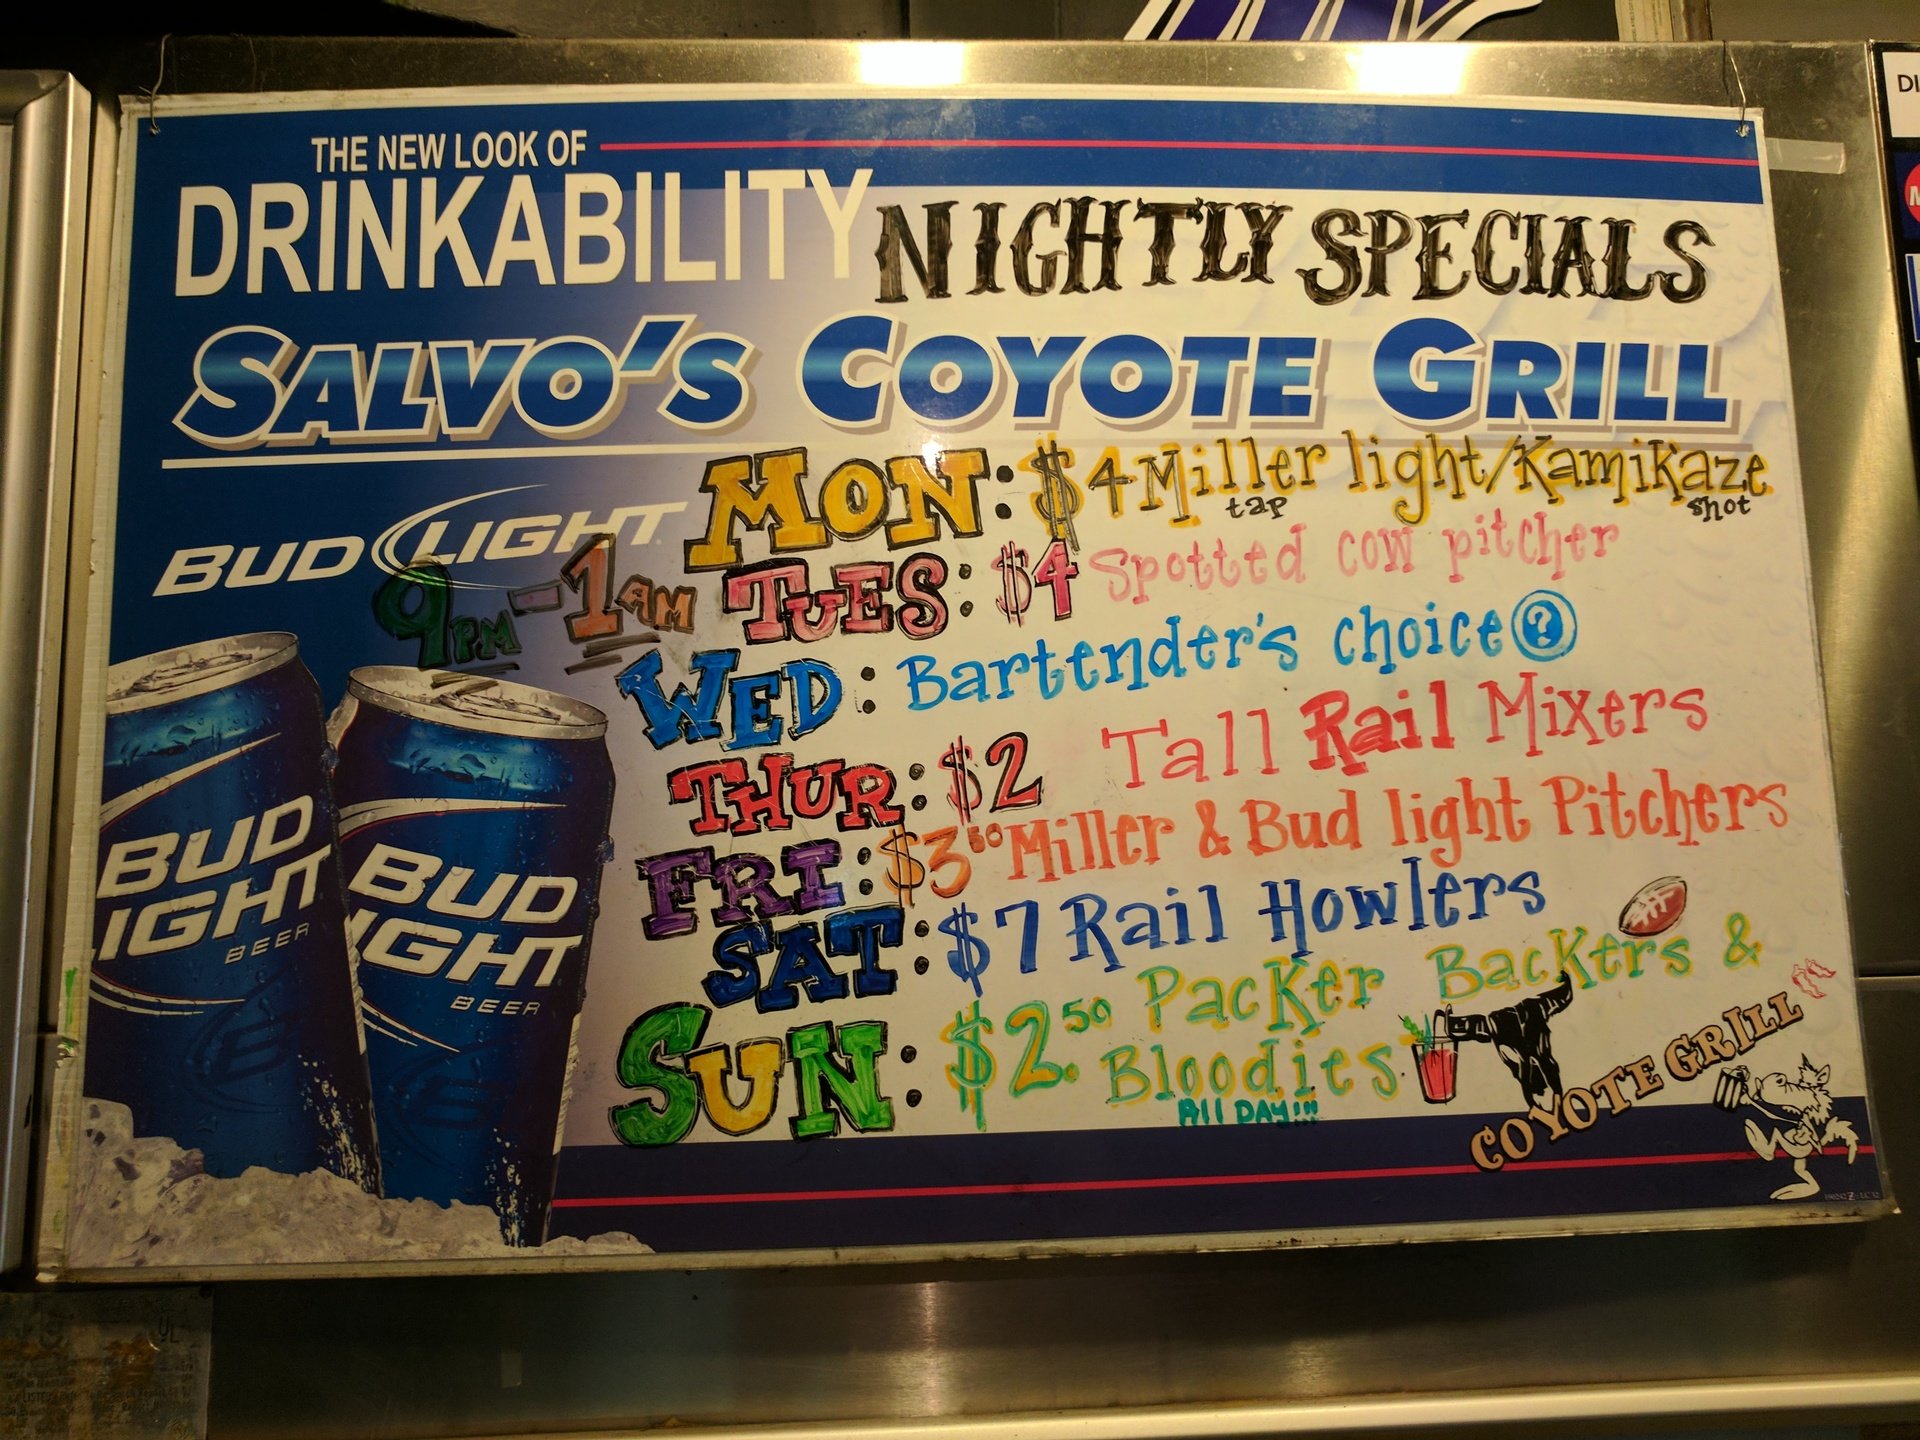 THE NEW LOOK OF
DRINKABILITY
NIGHTLY SPECIALS
SALVO'S COYOTE GRILL
BUD LIGHT
9PM-1AM
MON: $4 Miller light/Kamikaze
tap shot
TUES: $4 Spotted cow pitcher
WED: Bartender's choice ?
THUR: $2 Tall Rail Mixers
FRI: $3.50 Miller & Bud light Pitchers
SAT: $7 Rail Howlers
SUN: $2.50 Packer Backers &
Bloodies
All DAY!!!
BUD
IGHT
BEER
BUD
IGHT
BEER
COYOTE GRILL